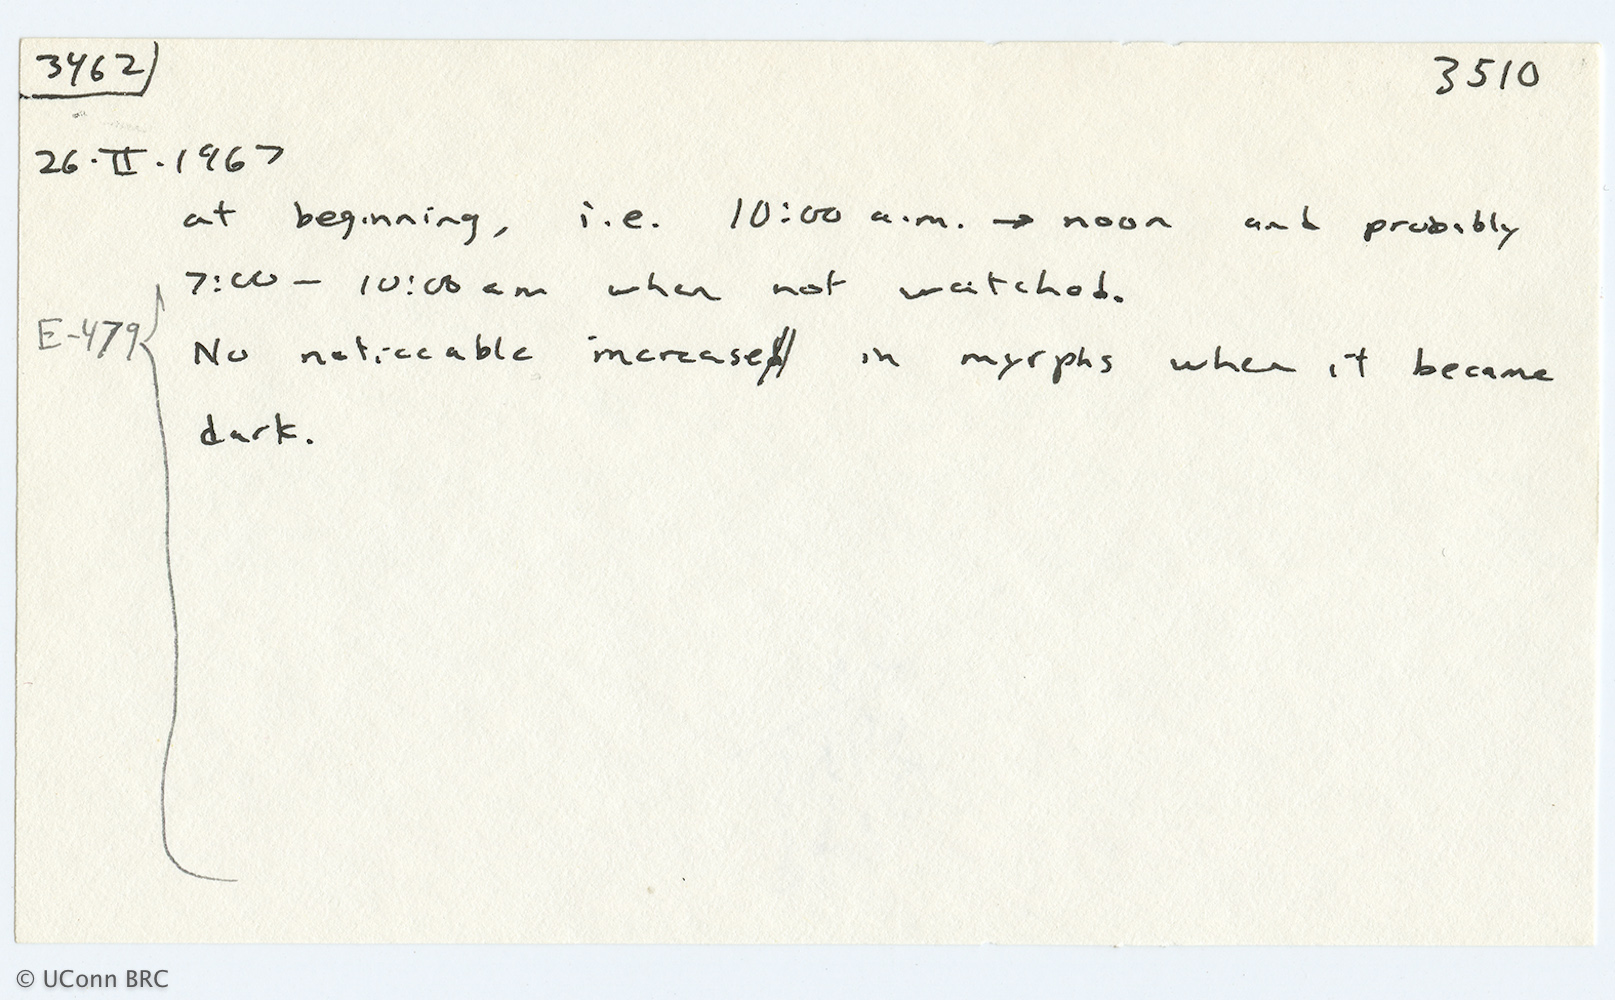 3462
3510
26·II·1967
at beginning, i.e. 10:00 a.m. → noon and probably
7:00 – 10:00 am when not watched.
E-479
No noticeable increase in myrphs when it became
dark.
© UConn BRC